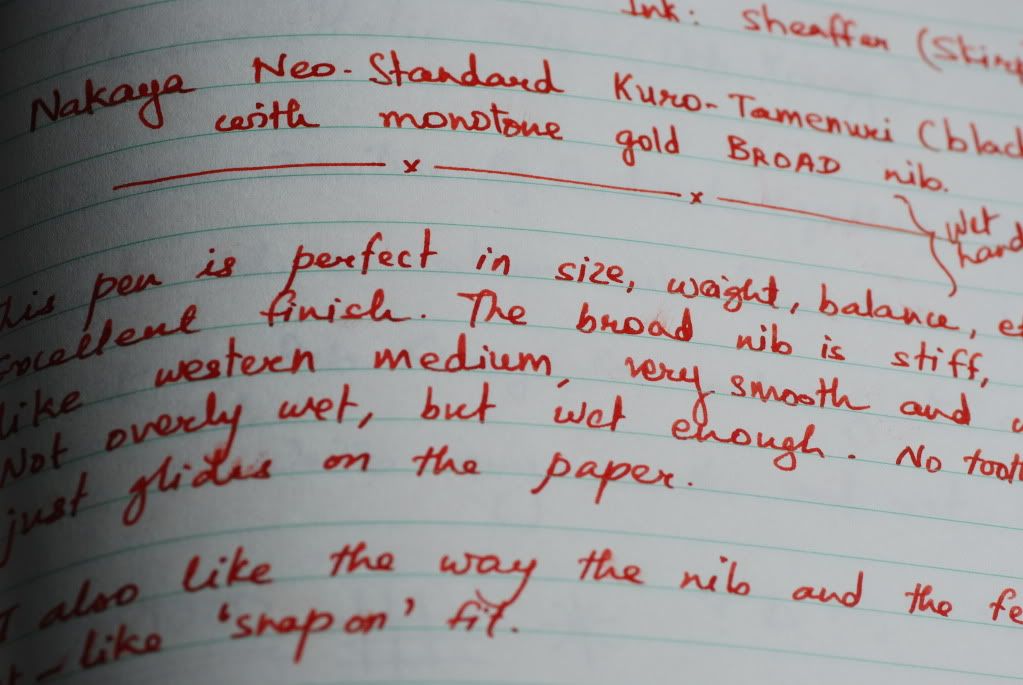 Ink: Sheaffer (Skrip
Nakaya Neo-Standard Kuro-Tamenuri (black
with monotone gold BROAD nib.
x x
Wet
hand
This pen is perfect in size, weight, balance, et
Excellent finish. The broad nib is stiff,
like western medium, very smooth and
Not overly wet, but wet enough. No tooth
just glides on the paper.
I also like the way the nib and the fe
- like 'snap on' fit.